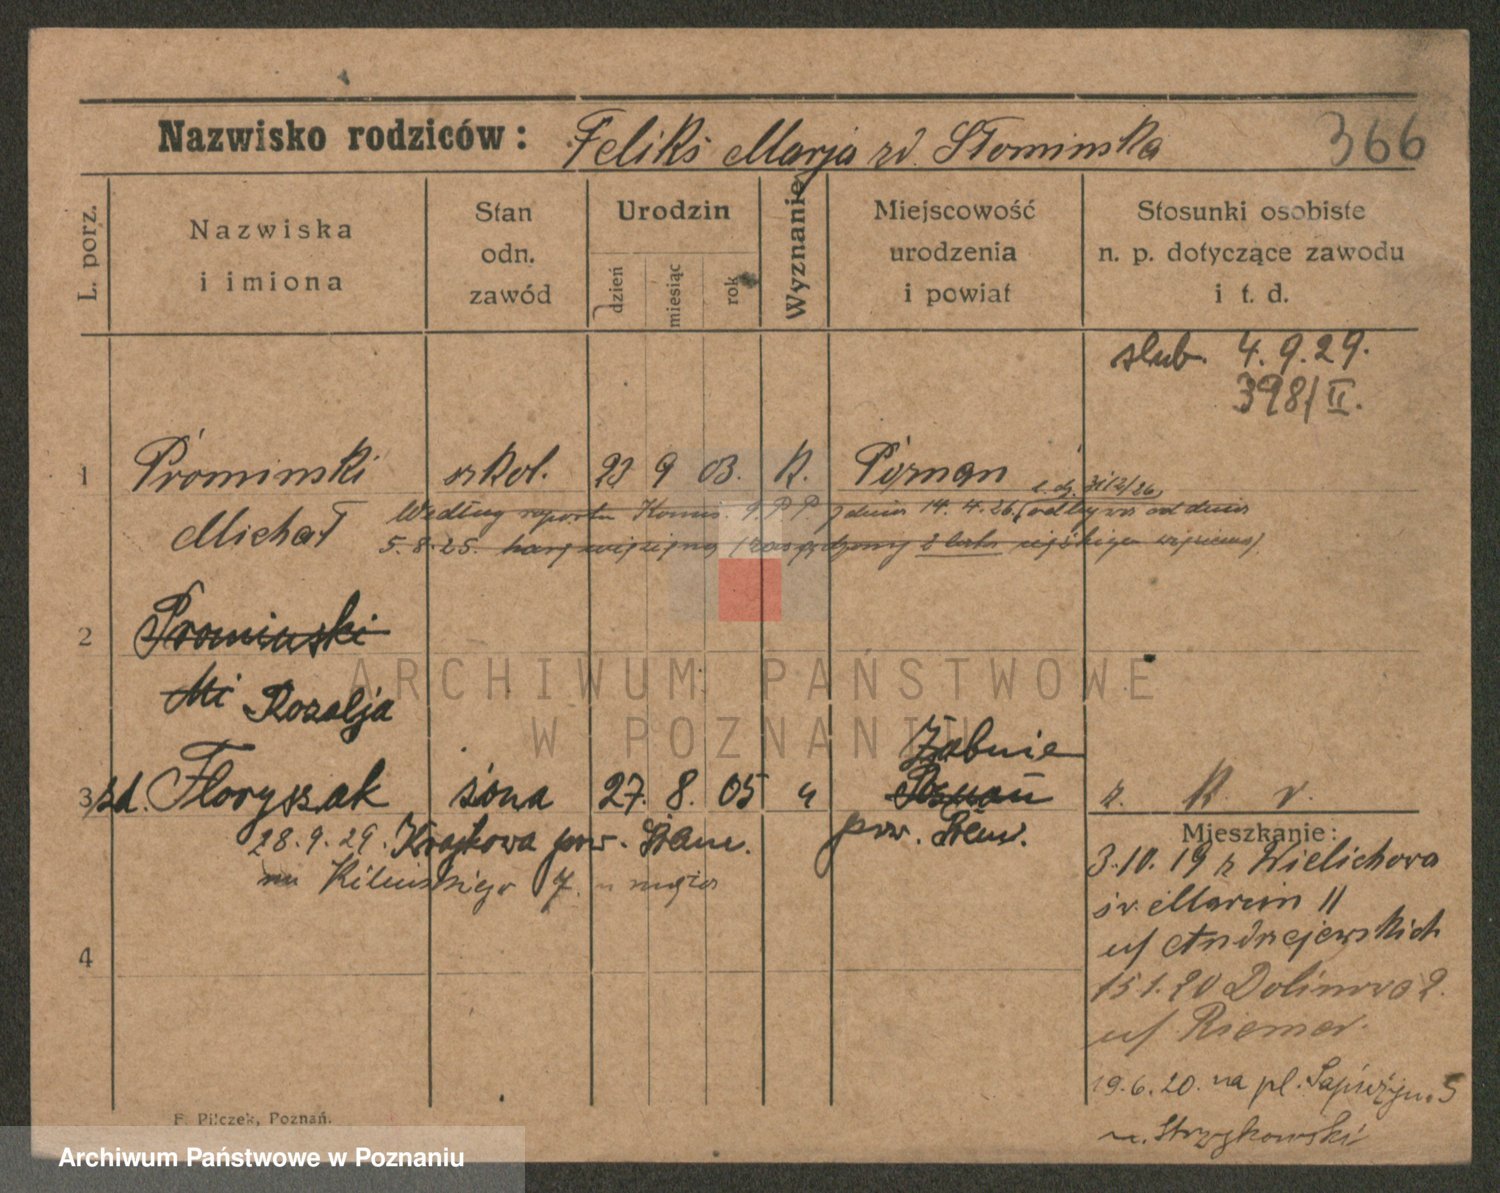 366
Nazwisko rodziców: Feliks Marja zd. Słominska
L. porz.
Nazwiska
i imiona
Stan
odn.
zawód
Urodzin
dzień
miesiąc
rok
Wyznanie
Miejscowość
urodzenia
i powiat
Stosunki osobiste
n. p. dotyczące zawodu
i t. d.
slub. 4.9.29.
398/II.
1 Prominski szkol. 23 9 03. k. Poznan
Michał
Według raportu Komis. P.P. z dnia 14.4.26. odbywa od dnia
5.8.25. 2 lata
2 Prominski
Mi Rozalja
3 zd. Floryszak żona 27. 8. 05 Żabnie
Poznań
pow. Śrem.
z. K. r.
28.9.29. Krajkowa pow. Śrem.
na Kilinskiego 7.
4
Mieszkanie:
3.10.19 z Wielichova
św. Marcin 11
u/ Andrzejewskich
15.1.20 Dolinova 2.
u/ Riemer.
19.6.20. na pl. Sapieżyn. 5
u. Strzykowski
F. Pilczek, Poznań.
ARCHIWUM PAŃSTWOWE
W POZNANIU
Archiwum Państwowe w Poznaniu